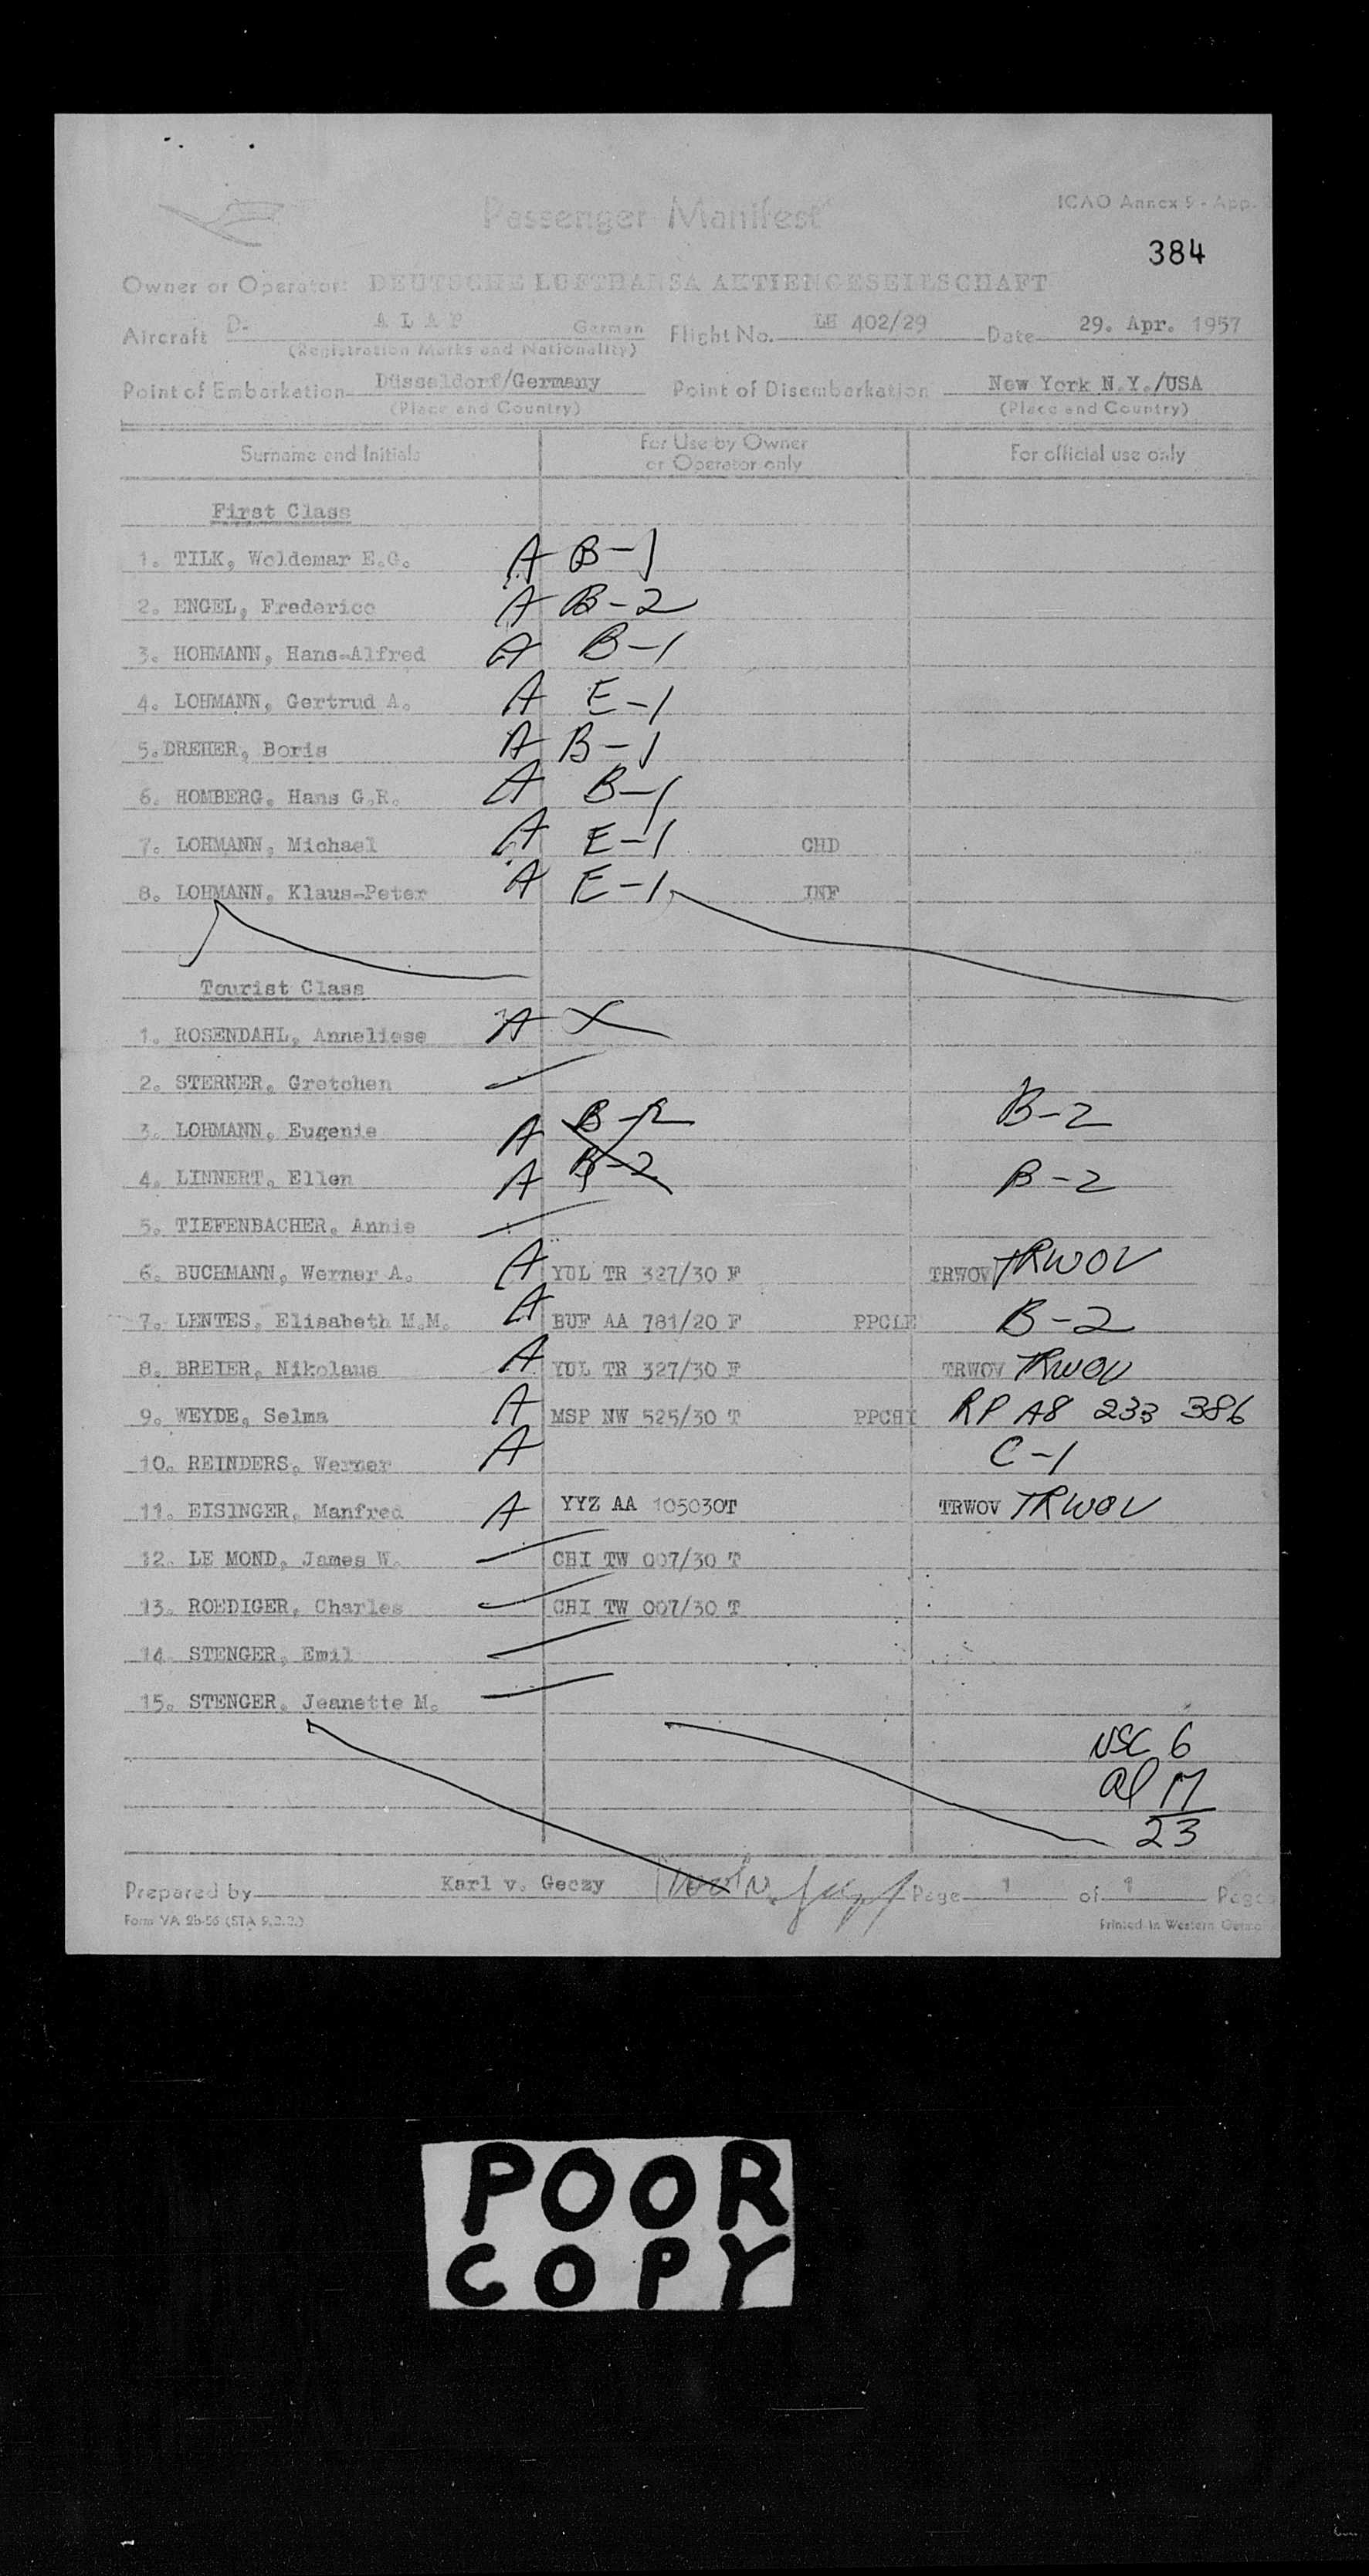 Passenger Manifest
ICAO Annex 9 - App.
384
Owner or Operator: DEUTSCHE LUFTHANSA AKTIENGESELLSCHAFT
Aircraft D- ALAP German Flight No. LH 402/29 Date 29. Apr. 1957
(Registration Marks and Nationality)
Point of Embarkation Düsseldorf/Germany Point of Disembarkation New York N.Y./USA
(Place and Country) (Place and Country)
Surname and Initials For Use by Owner or Operator only For official use only
First Class
1. TILK, Woldemar E.G. A B-1
2. ENGEL, Frederico A B-2
3. HOHMANN, Hans-Alfred A B-1
4. LOHMANN, Gertrud A. A E-1
5. DREHER, Boris A B-1
6. HOMBERG, Hans G.R. A B-1
7. LOHMANN, Michael A E-1 CHD
8. LOHMANN, Klaus-Peter A E-1 INF
Tourist Class
1. ROSENDAHL, Anneliese A X
2. STERNER, Gretchen
3. LOHMANN, Eugenie A B-2 B-2
4. LINNERT, Ellen A B-2 B-2
5. TIEFENBACHER, Annie
6. BUCHMANN, Werner A. A YUL TR 327/30 F TRWOV TRWOV
7. LENTES, Elisabeth M.M. A BUF AA 781/20 F PPCLE B-2
8. BREIER, Nikolaus A YUL TR 327/30 F TRWOV TRWOV
9. WEYDE, Selma A MSP NW 525/30 T PPCHI RP A8 233 386
10. REINDERS, Werner A C-1
11. EISINGER, Manfred A YYZ AA 105030T TRWOV TRWOV
12. LE MOND, James W. CHI TW 007/30 T
13. ROEDIGER, Charles CHI TW 007/30 T
14 STENGER, Emil
15. STENGER, Jeanette M.
USC 6
al 17
23
Prepared by Karl v. Geczy Page 1 of 1 Page
Form VA 2b-56 (STA 9.2.2.) Printed in Western Germa
POOR
COPY